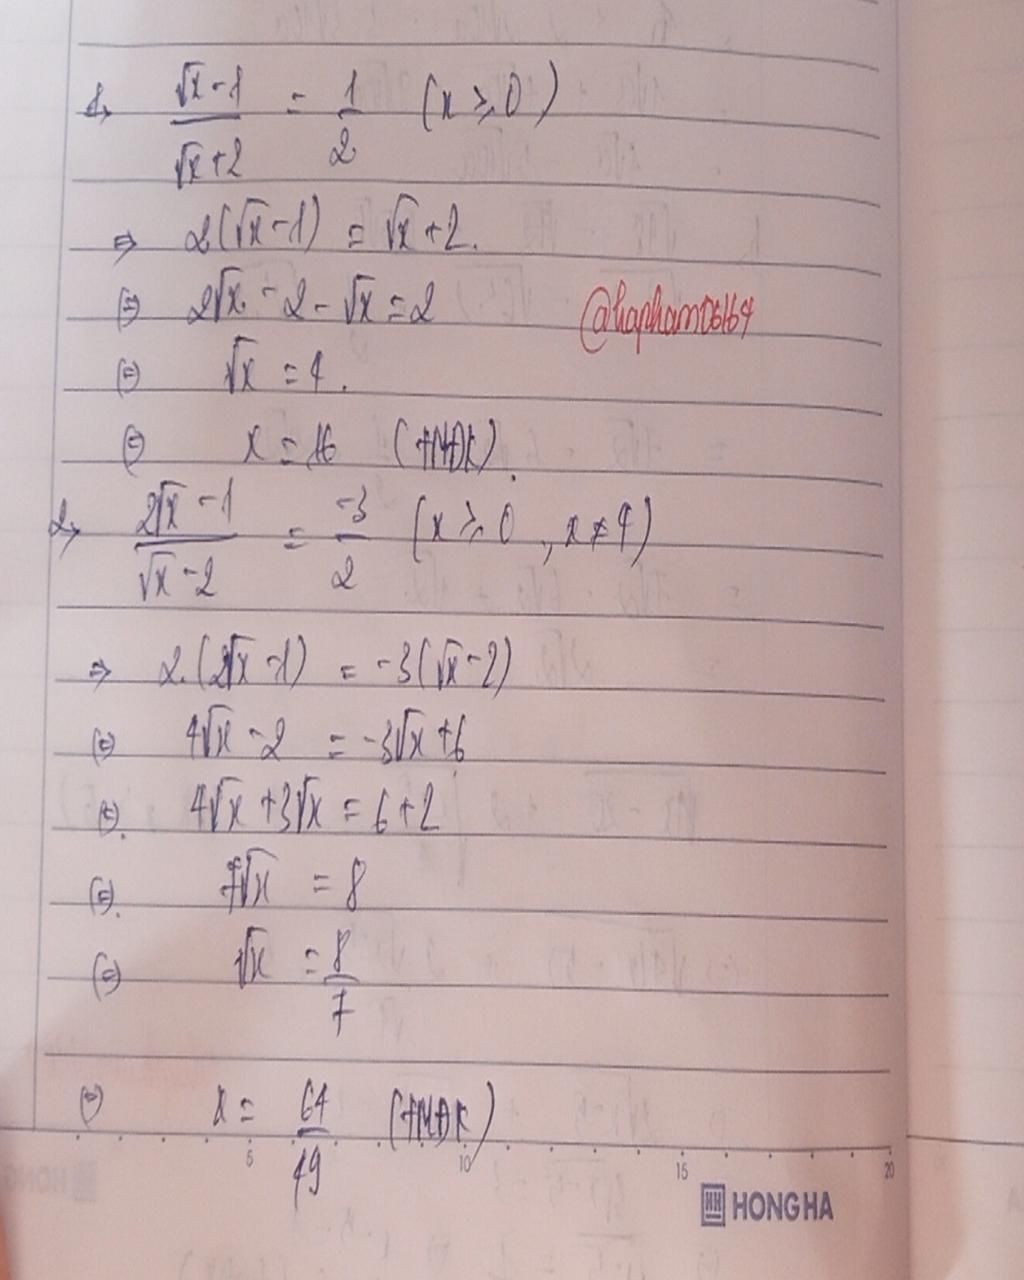 1, (√x - 1)/(√x + 2) = 1/2 (x ≥ 0)
⇒ 2(√x - 1) = √x + 2.
⇔ 2√x - 2 - √x = 2
@hapham06164
⇔ √x = 4.
⇔ x = 16 (TMĐK).
2, (2√x - 1)/(√x - 2) = -3/2 (x ≥ 0, x ≠ 4)
⇒ 2.(2√x - 1) = -3(√x - 2)
⇔ 4√x - 2 = -3√x + 6
⇔. 4√x + 3√x = 6 + 2
⇔. 7√x = 8
⇔ √x = 8/7
⇔ x = 64/49 (TMĐK)
5 10 15 20
HH HONG HA